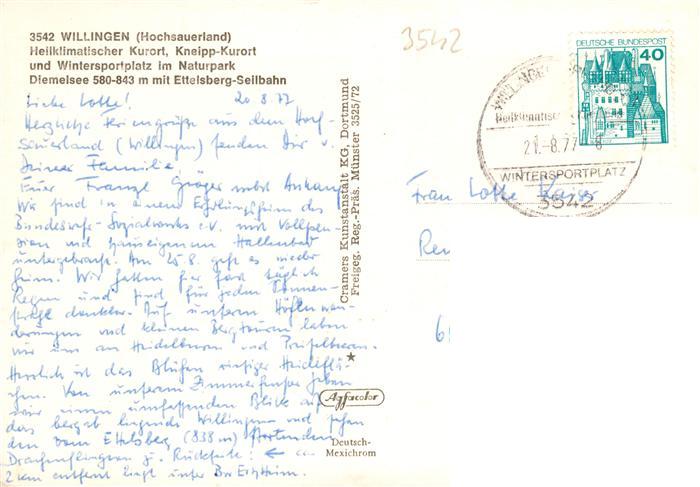 3542 WILLINGEN (Hochsauerland)
Heilklimatischer Kurort, Kneipp-Kurort
und Wintersportplatz im Naturpark
Diemelsee 580-843 m mit Ettelsberg-Seilbahn
Liebe Lotte! 20.8.77
Herzliche Feriengrüße aus dem Hoch-
sauerland (Willingen) senden Dir u.
Deiner Familie
Euer Franzl nebst Anhang
Wir sind in einem Erholungsheim des
Bundeswehr-Sozialwerks e.V. mit Vollpen-
sion und hauseigenem Hallenbad
untergebracht. Am 25.8. geht es wieder
heim. Wir hatten hier fast täglich
Regen und sind für jeden Sonnen-
strahl dankbar. Auf unseren
und kleinen Bergtouren laben
wir uns an Heidelbeeren und Preiselbeeren.
Herrlich ist das Blühen riesiger Heideflä-
chen. Von unserem Zimmerfenster haben
wir einen umfassenden Blick auf
das bergab liegende Willingen und sehen
den vom Ettelsberg (838 m) startenden
Drachenfliegern z. Rückseite: ← ca.
2 km entfernt liegt unser
Cramers Kunstanstalt KG, Dortmund
Freigeg. Reg.-Präs. Münster 3525/72
Agfacolor
Deutsch-
Mexichrom
3542
DEUTSCHE BUNDESPOST
40
Heilklimatischer
21.-8.77
WINTERSPORTPLATZ
3542
Frau Lotte Kaiser
6